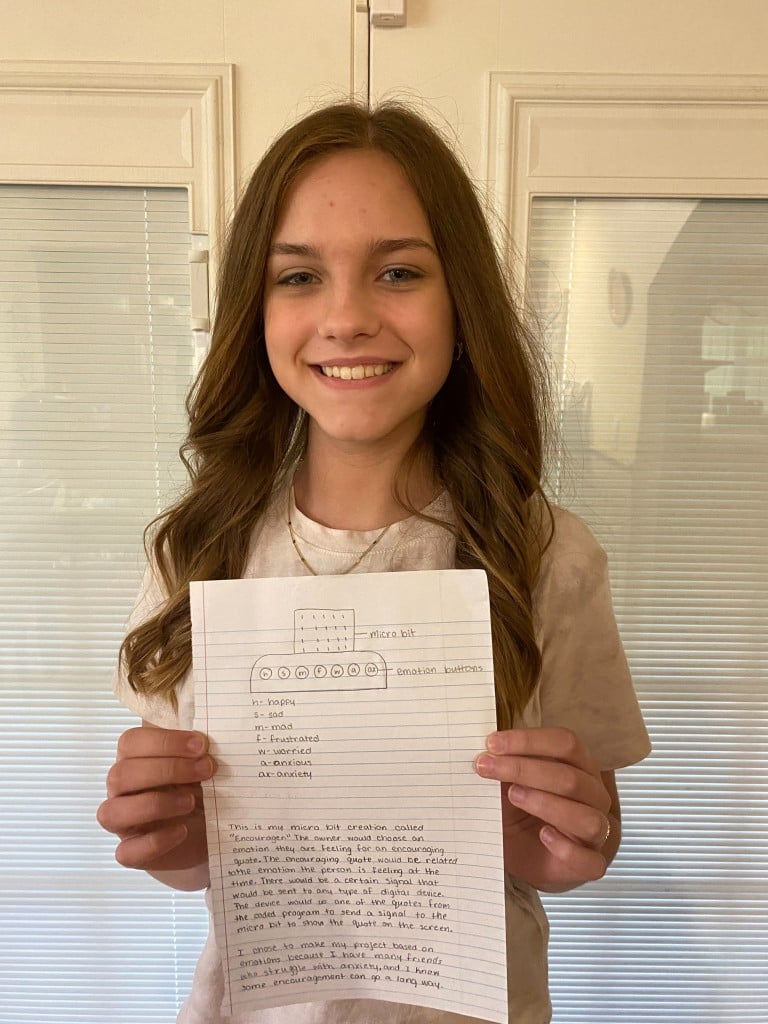 micro bit
h s m f w a ax
emotion buttons
h- happy
s- sad
m- mad
f- frustrated
w- worried
a- anxious
ax- anxiety
This is my micro bit creation called
"Encourager." The owner would choose an
emotion they are feeling for an encouraging
quote. The encouraging quote would be related
to the emotion the person is feeling at the
time. There would be a certain signal that
would be sent to any type of digital device.
The device would us one of the quotes from
the coded program to send a signal to the
micro bit to show the quote on the screen.
I chose to make my project based on
emotions because I have many friends
who struggle with anxiety, and I know
some encouragement can go a long way.